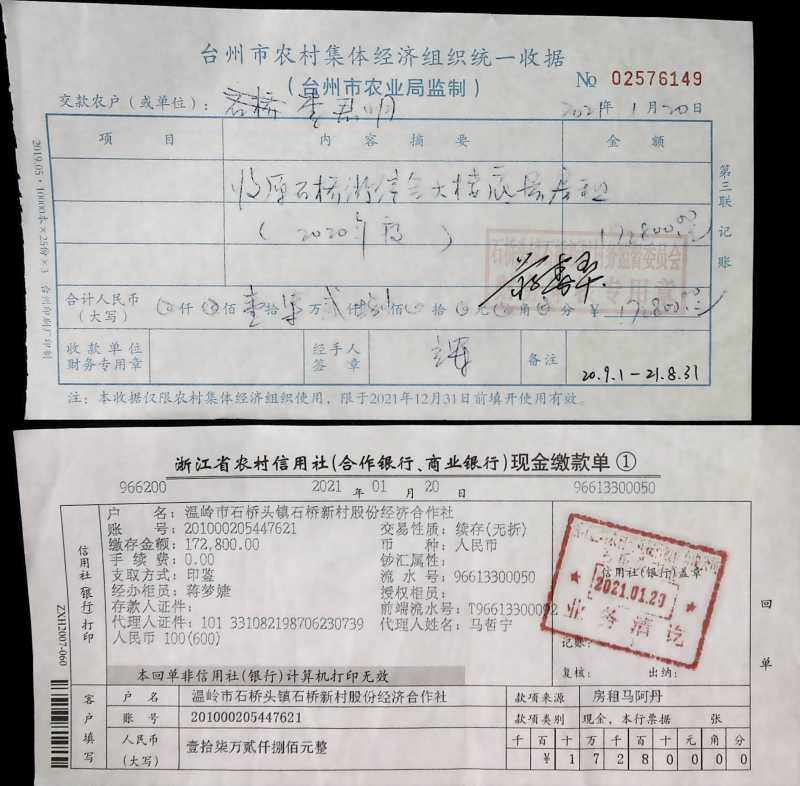 台州市农村集体经济组织统一收据
(台州市农业局监制)
№ 02576149
交款农户(或单位): 石桥
2021年1月20日
项 目 内 容 摘 要 金 额
收原石桥街信合大楼底层房租
(2020年度) 172,800.00
合计人民币
(大写) 仟 佰壹拾柒万贰仟捌佰 拾 元 角 分 ¥ 172,800.00
收款单位
财务专用章
经手人
签 章
备注 20.9.1-21.8.31
注:本收据仅限农村集体经济组织使用,限于2021年12月31日前填开使用有效。
第三联 记账
浙江省农村信用社(合作银行、商业银行)现金缴款单①
966200 2021 年 01 月 20 日 96613300050
户 名:温岭市石桥头镇石桥新村股份经济合作社
账 号:201000205447621 交易性质:续存(无折)
缴存金额:172,800.00 币 种:人民币
手 续 费:0.00 钞汇属性:
支取方式:印鉴 流 水 号:96613300050
经办柜员:蒋梦婕 授权柜员:
存款人证件: 前端流水号:T96613300092
代理人证件:101 331082198706230739 代理人姓名:马哲宁
人民币 100(600)
本回单非信用社(银行)计算机打印无效
信用社(银行)打印
ZXH2007-060
信用社(银行)盖章
2021.01.20
业务清讫
记账:
复核: 出纳:
回单
客户填写
户 名 温岭市石桥头镇石桥新村股份经济合作社 款项来源 房租马阿丹
账 号 201000205447621 款项类别 现金,本行票据 张
人民币
(大写) 壹拾柒万贰仟捌佰元整
千 百 十 万 千 百 十 元 角 分
¥ 1 7 2 8 0 0 0 0